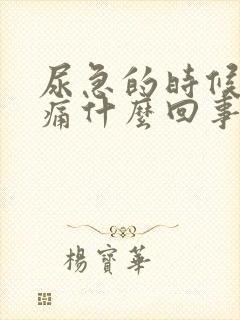 尿急的時候
痛什麼回事
楊寶華